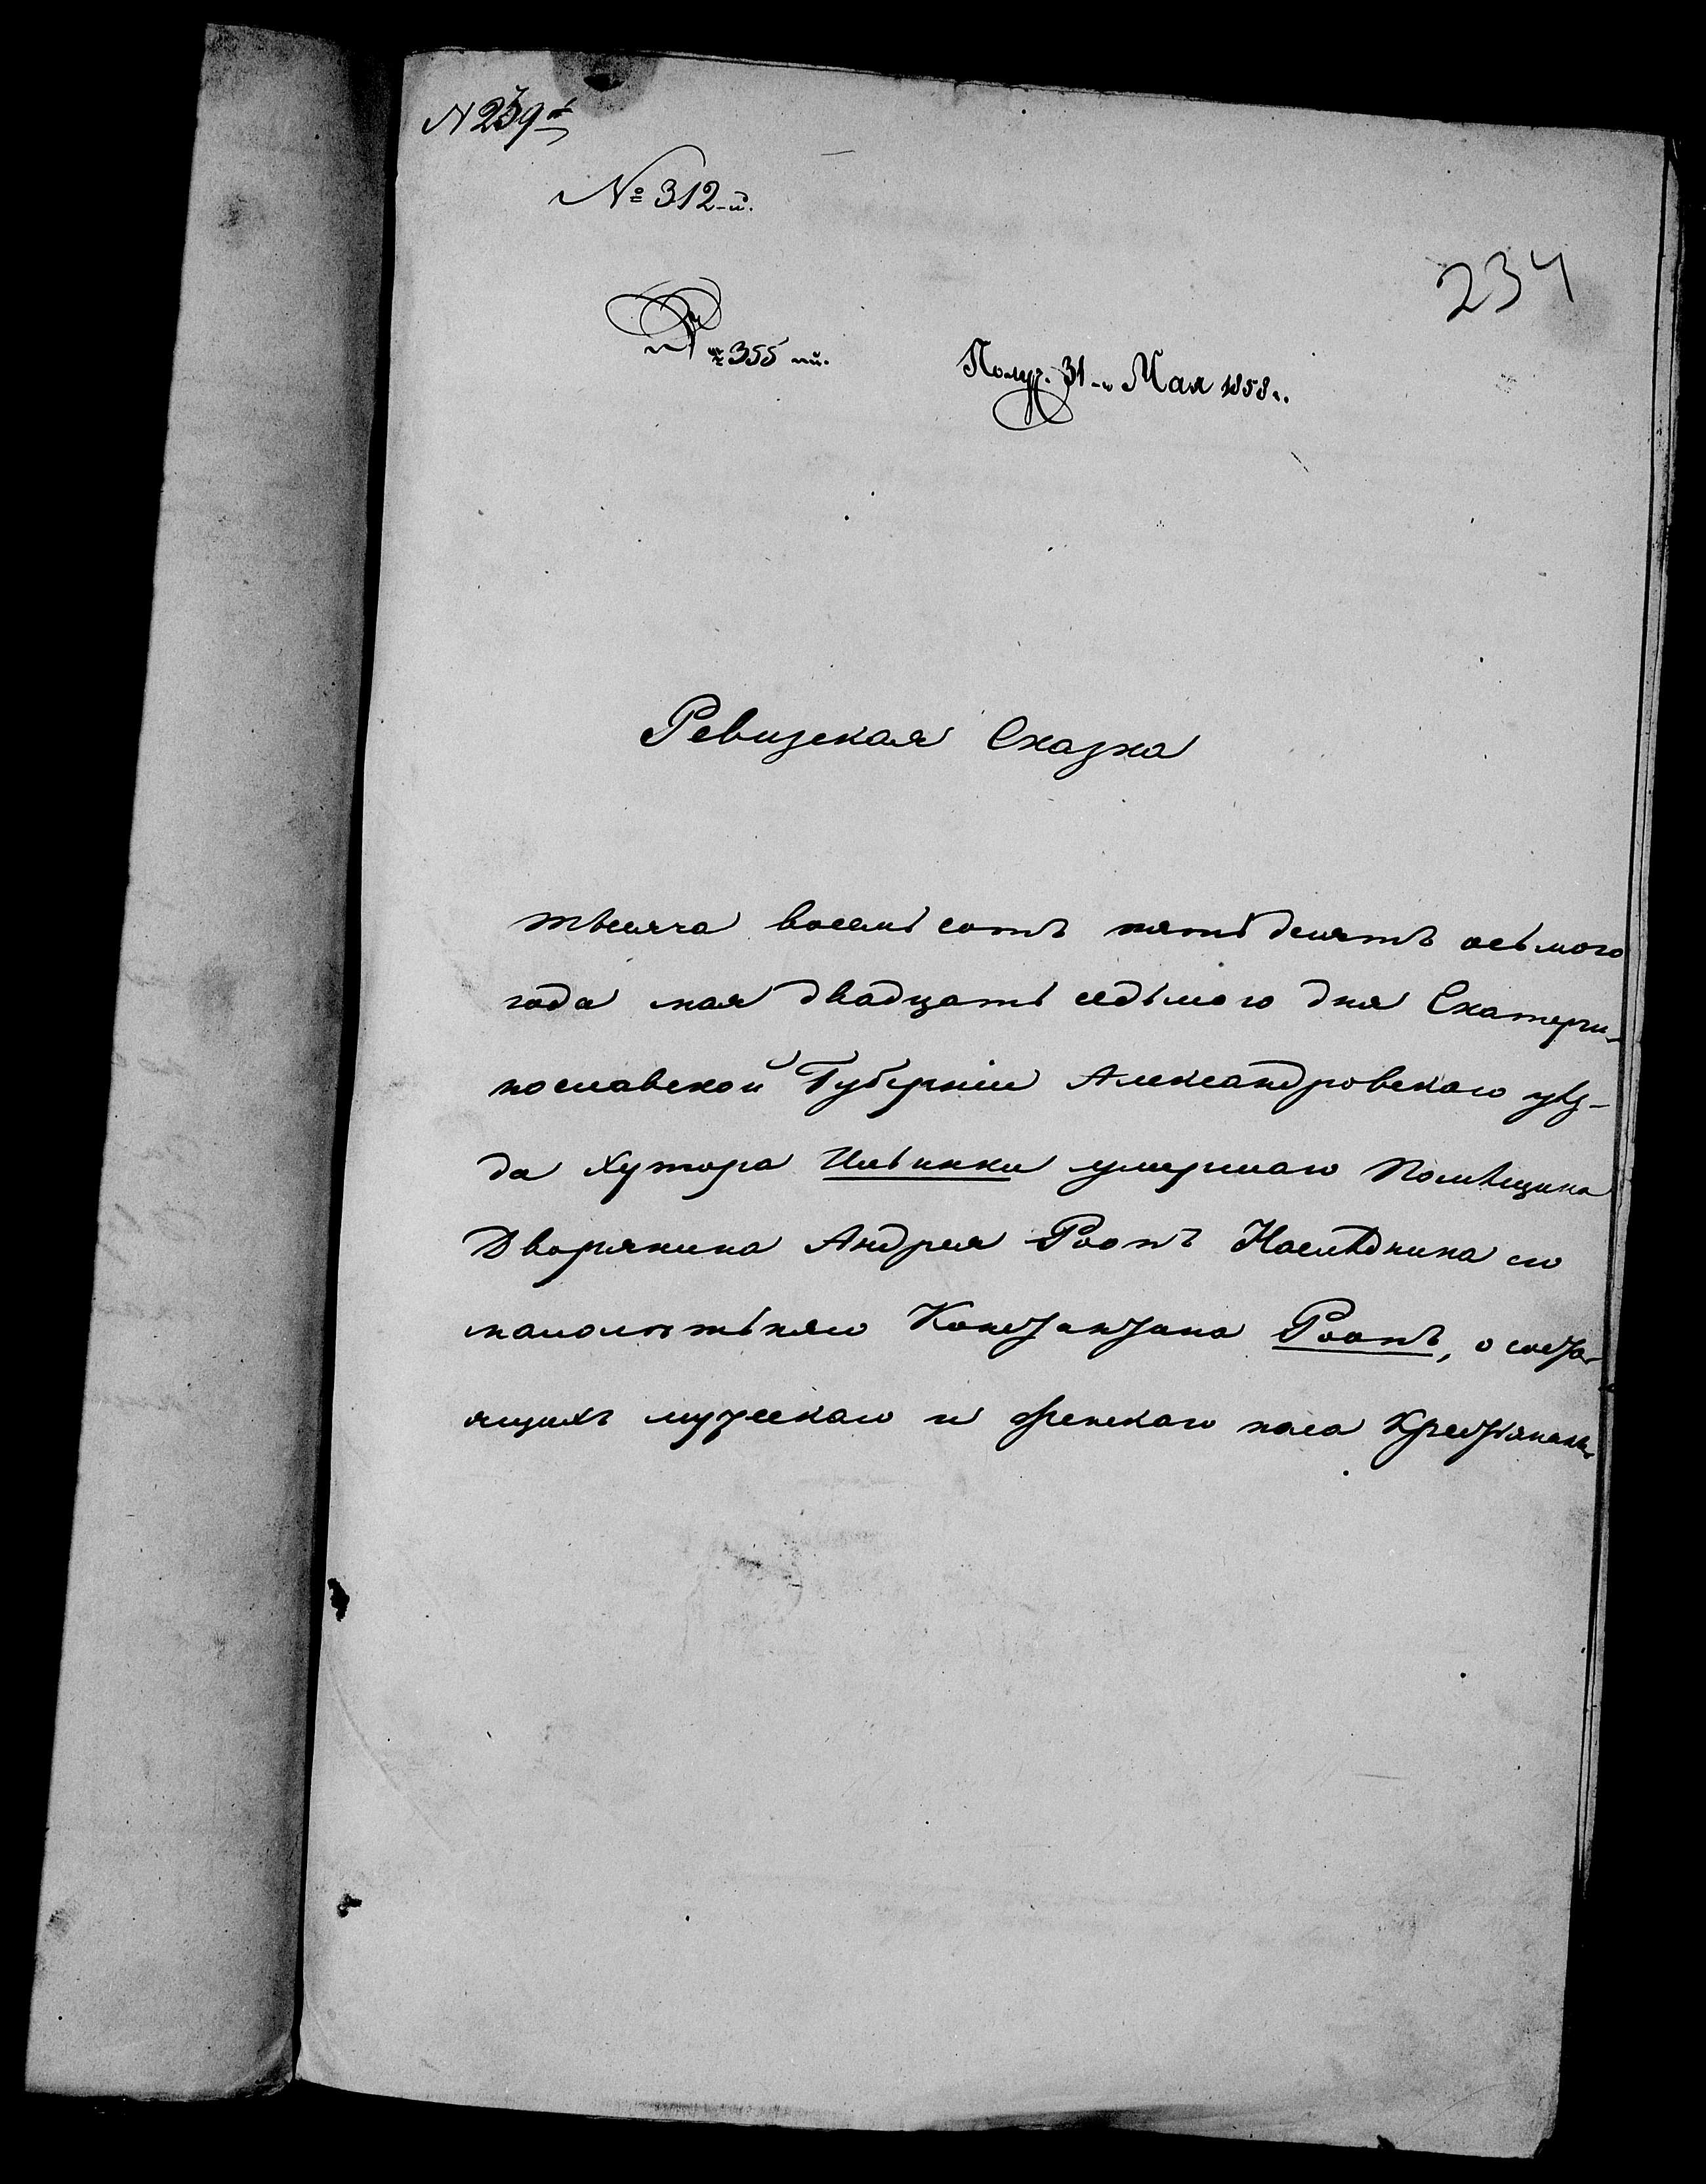 N 239й
№ 312-й.
234
№ 355 ый.
Получ. 31-го Мая 1858 г.
Ревизская Сказка
тысяча восемь сотъ пятьдесятъ осьмого
года мая двадцать седьмого дня Екатери-
нославской Губерніи Александровскаго уѣз-
да Хутора Ильинки умершаго Помѣщика
Дворянина Андрея Роопъ Наслѣдника его
малолѣтьняго Константина Роопъ, о состо-
ящихъ мужескаго и женскаго пола Крестьянахъ